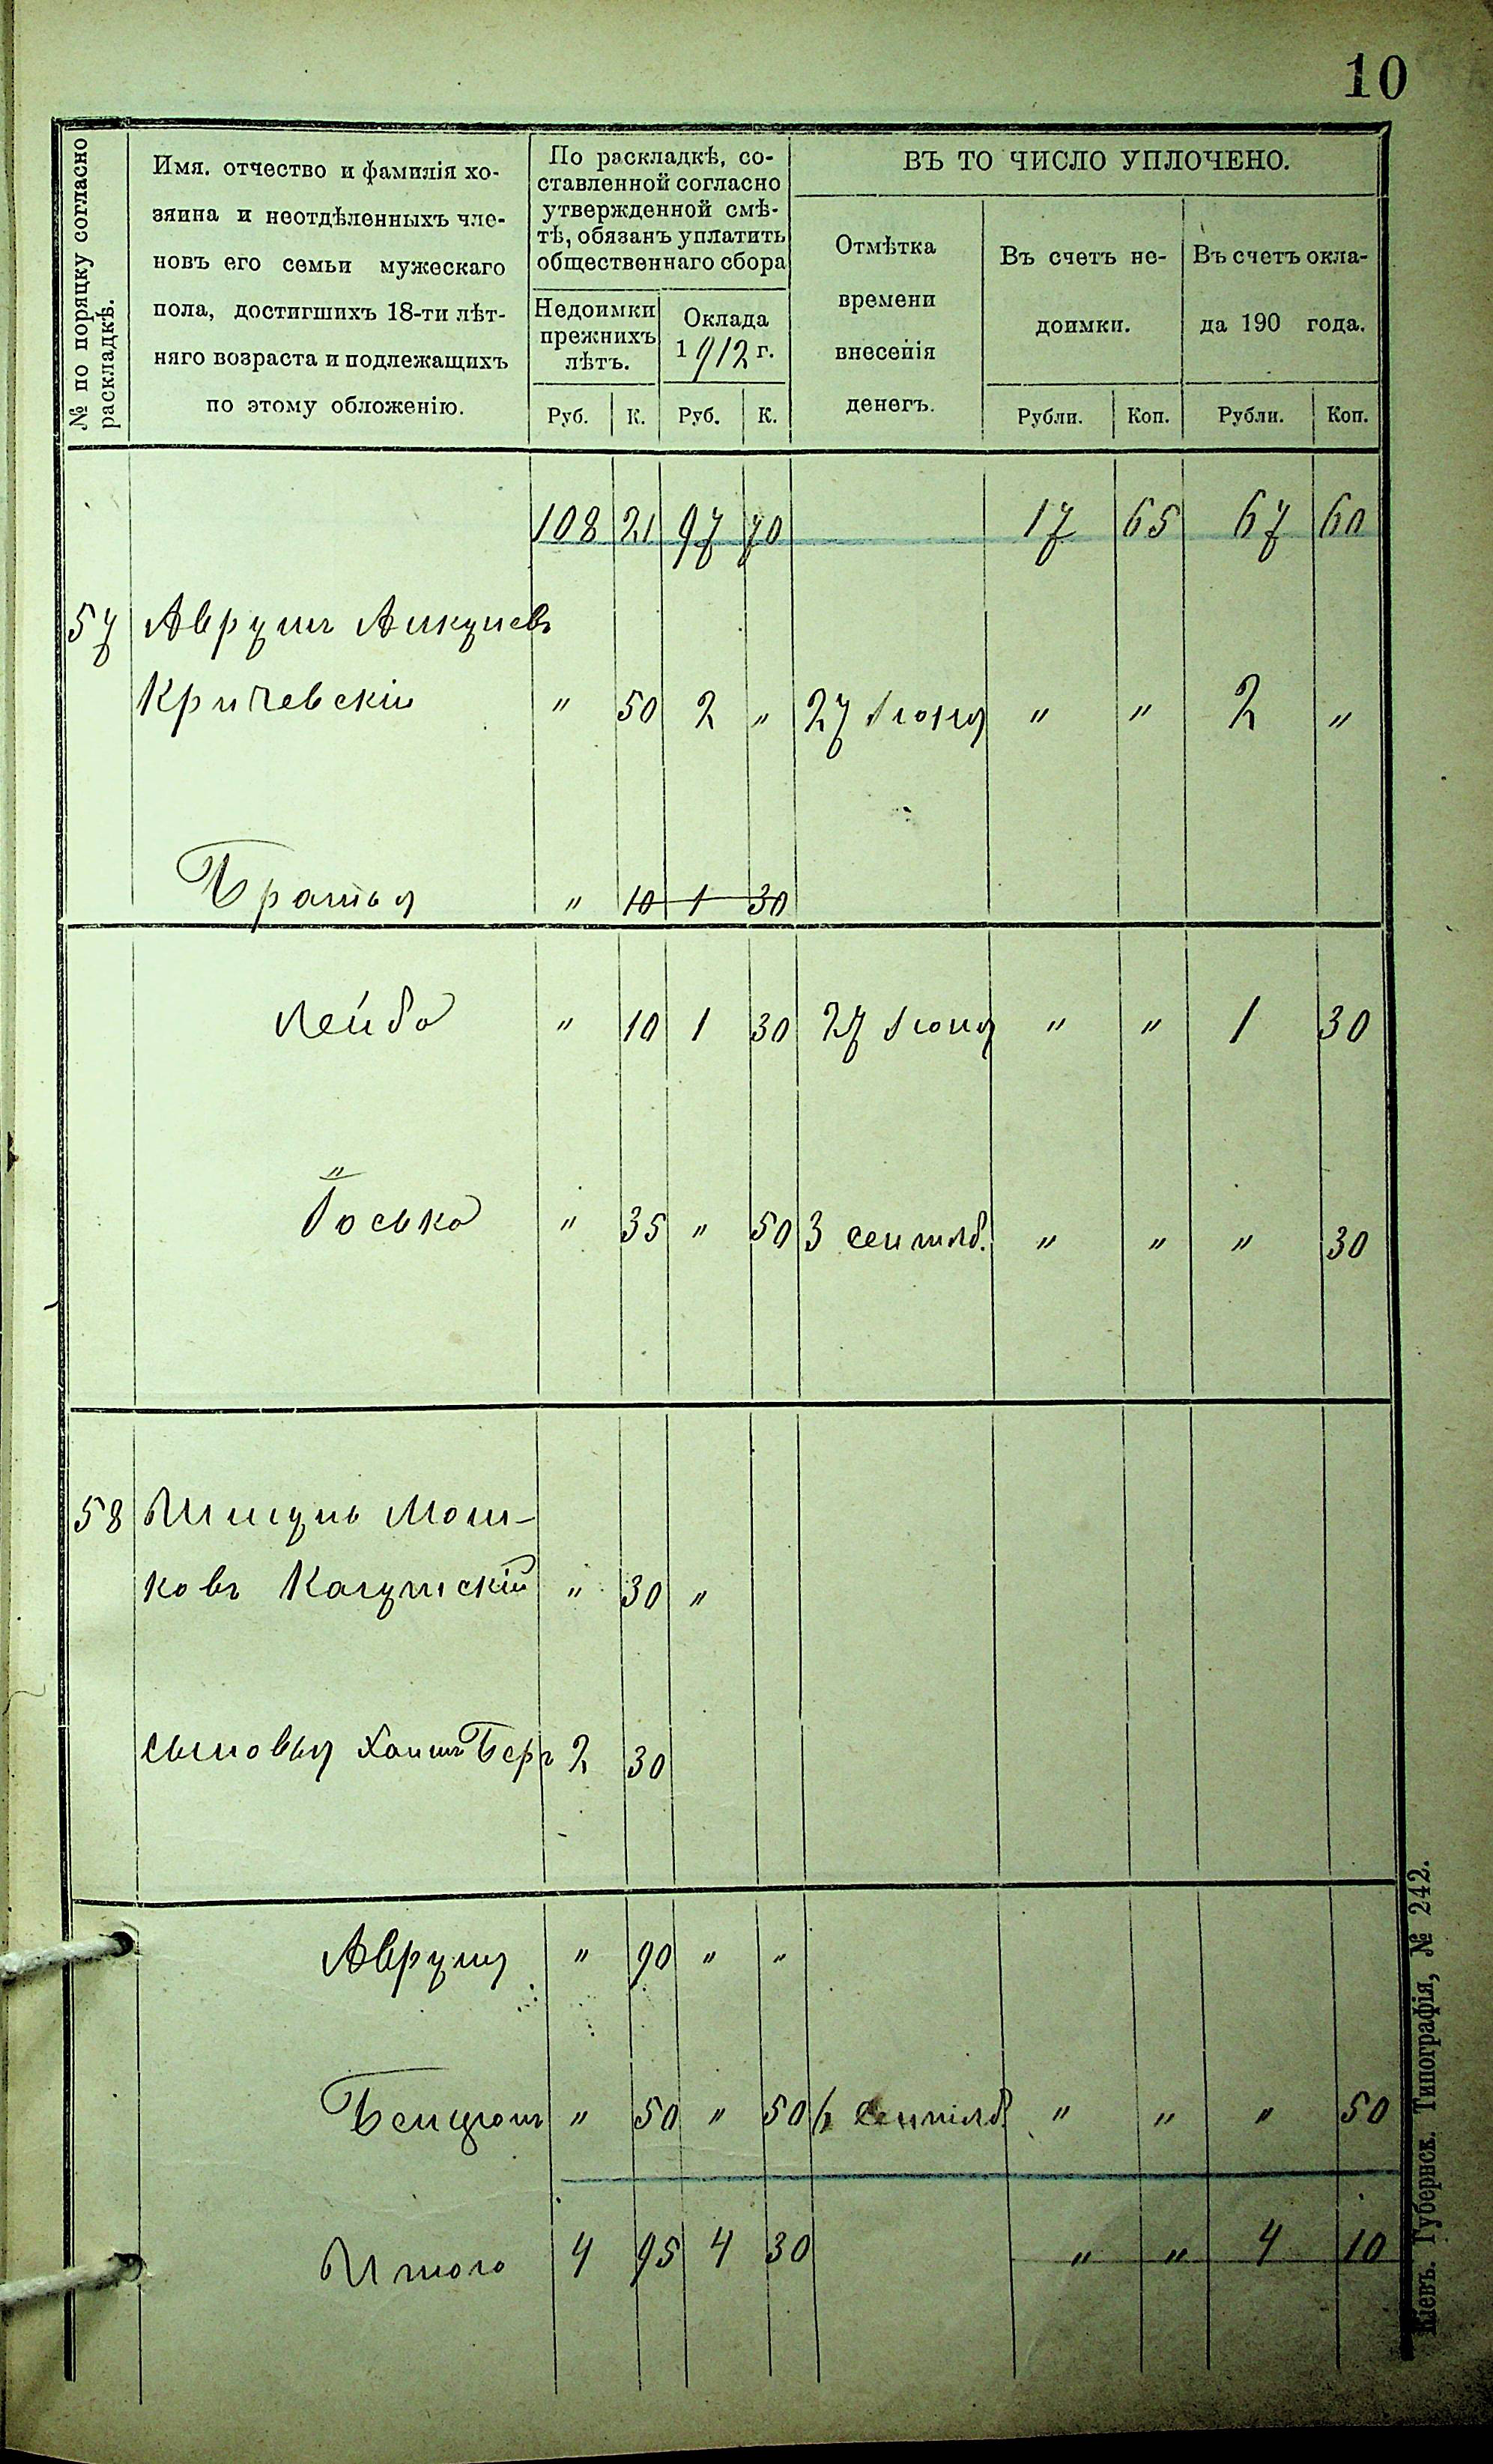 10
№ по порядку согласно раскладкѣ.
Имя. отчество и фамилія хо-
зяина и неотдѣленныхъ чле-
новъ его семьи мужескаго
пола, достигшихъ 18-ти лѣт-
няго возраста и подлежащихъ
по этому обложенію.
По раскладкѣ, со-
ставленной согласно
утвержденной смѣ-
тѣ, обязанъ уплатить
общественнаго сбора
Недоимки
прежнихъ
лѣтъ.
Оклада
1912 г.
Руб. К. Руб. К.
ВЪ ТО ЧИСЛО УПЛОЧЕНО.
Отмѣтка
времени
внесенія
денегъ.
Въ счетъ не-
доимки.
Въ счетъ окла-
да 190 года.
Рубли. Коп. Рубли. Коп.
108 21 97 70 17 65 67 60
57 Аврумъ
Кричевскій " 50 2 " 27 Іюня " " 2 "
Братья " 10 1 30
Лейба " 10 1 30 27 Іюня " " 1 30
Іоська " 35 " 50 3 сентяб. " " " 30
58 Мош-
ковъ " 30 "
сыновья Хаимъ Беръ 2 30
Аврумъ " 90 " "
Бенціонъ " 50 " 50 6 Сентяб. " " " 50
Итого 4 95 4 30 " " 4 10
Кіевъ. Губернск. Типографія, № 242.